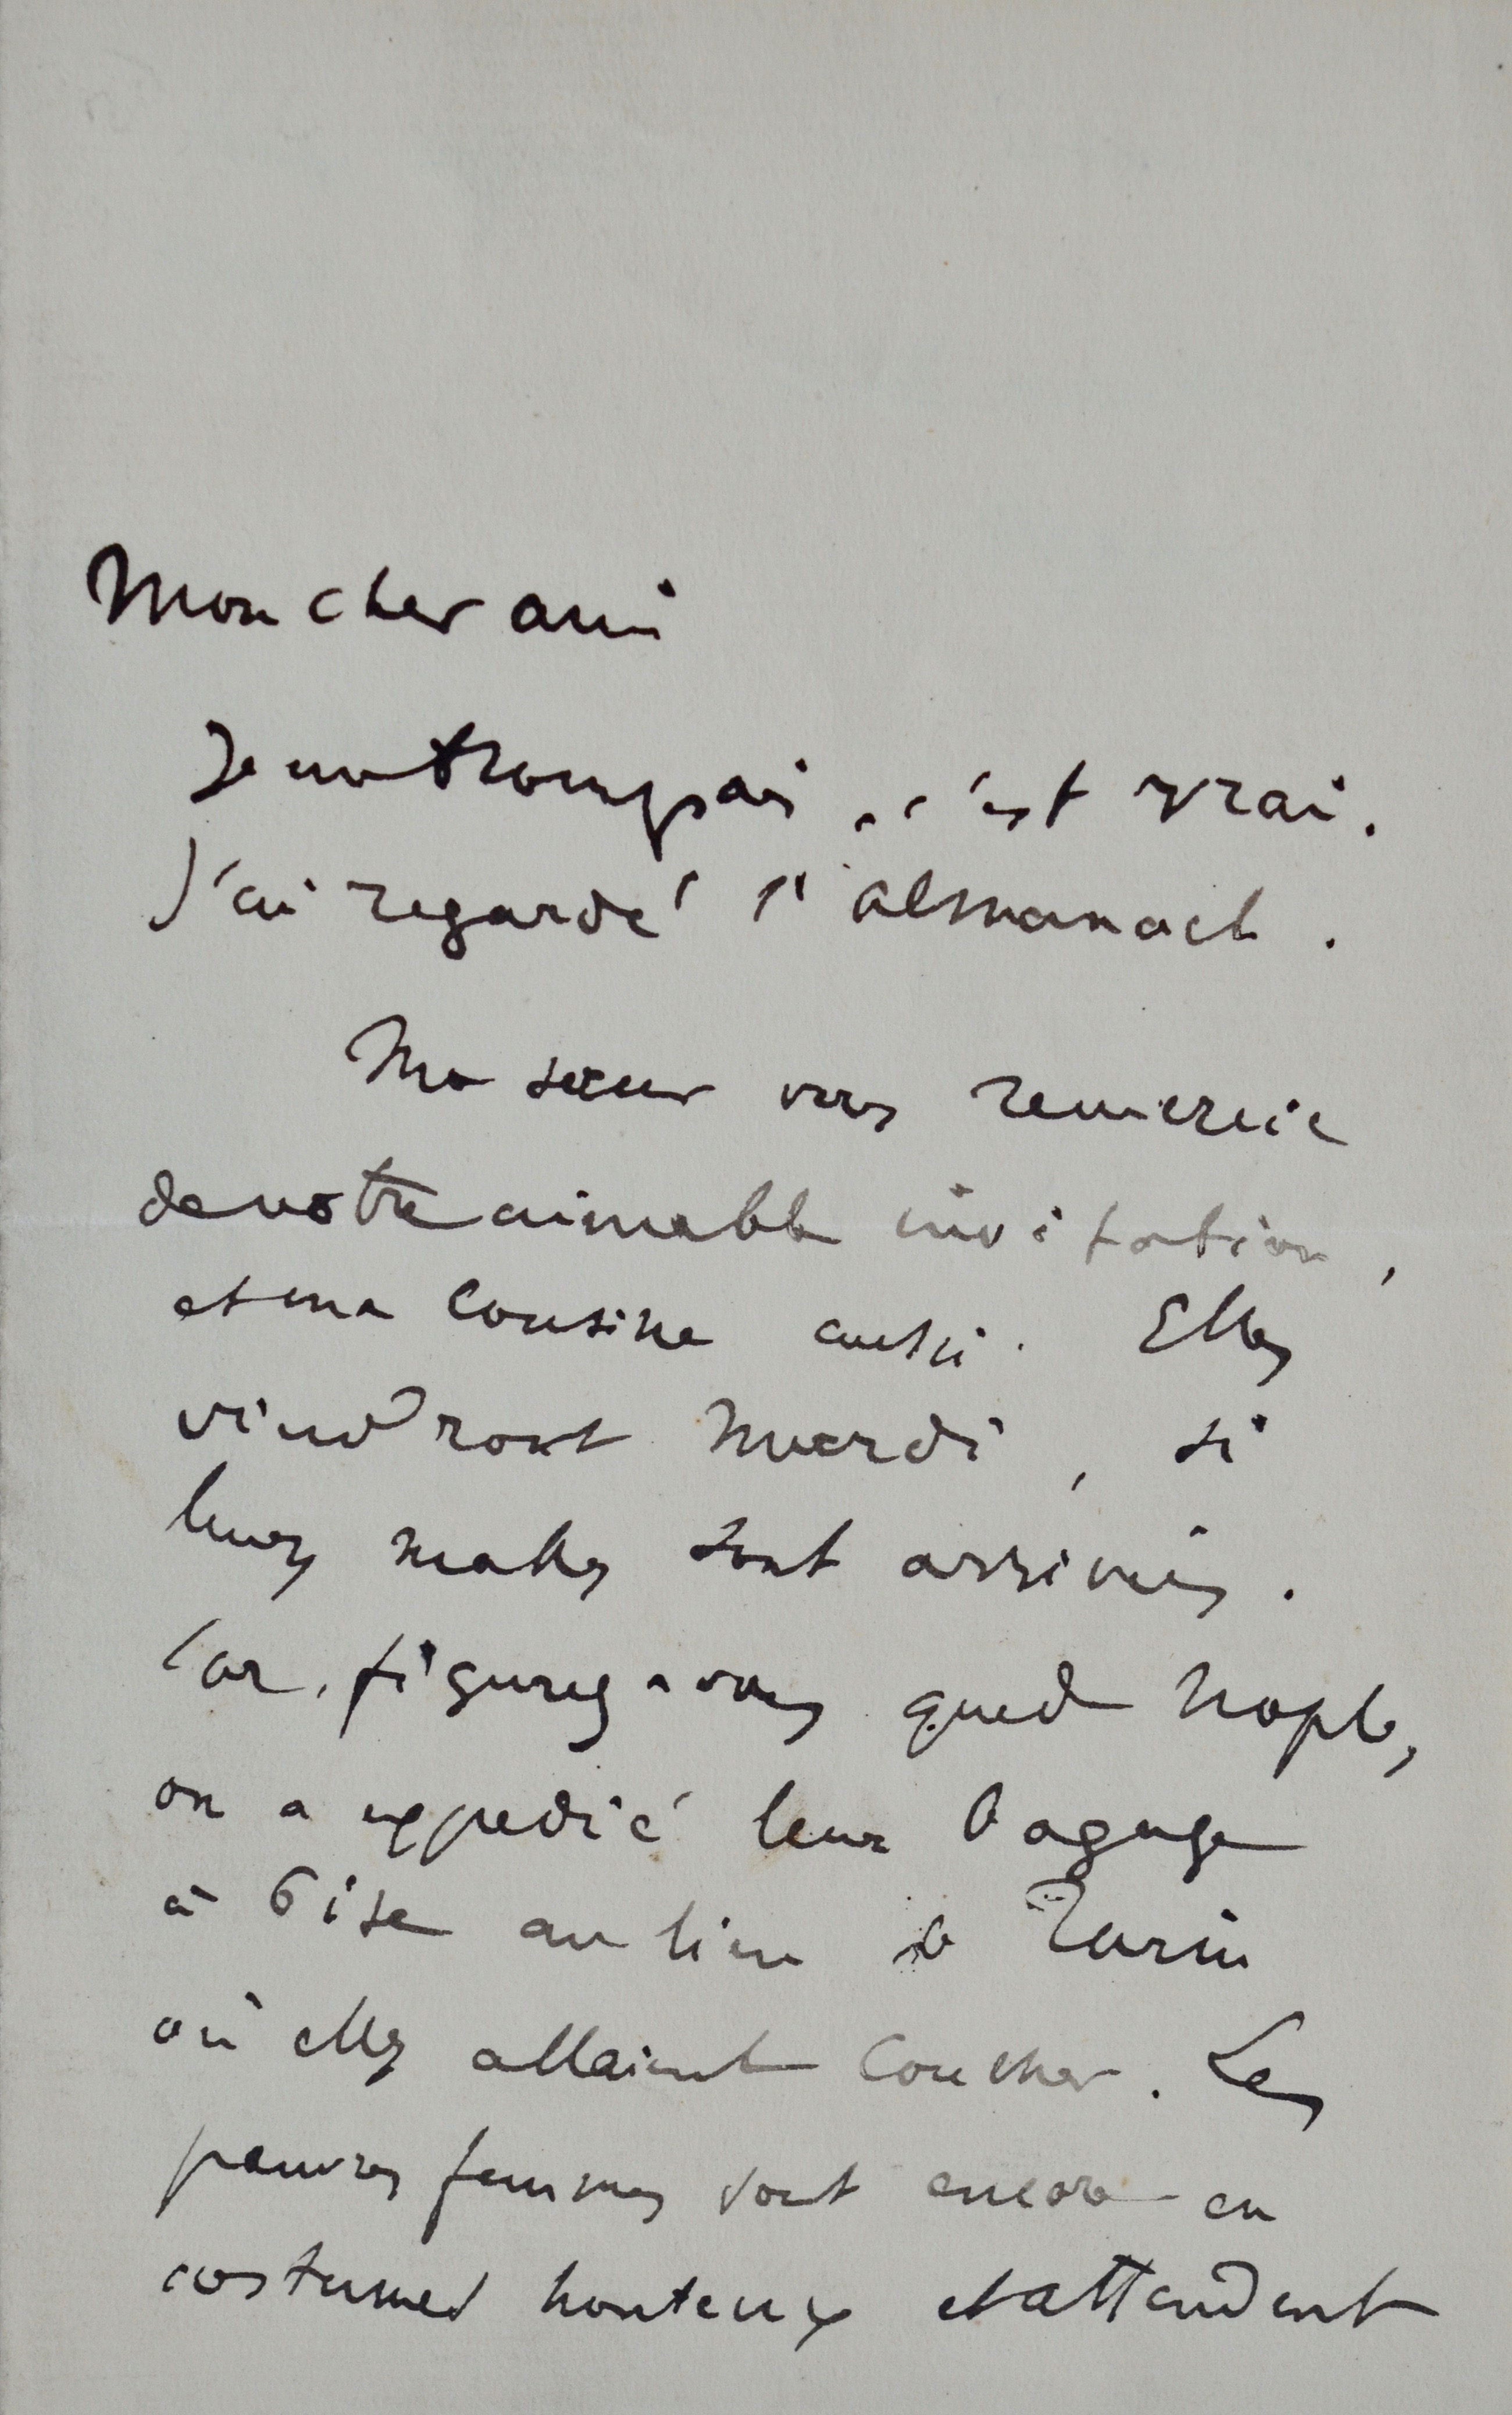 Mon cher ami
Je me trompais, c'est vrai.
J'ai regardé l'almanach.
Ma sœur vous remercie
de votre aimable invitation,
et ma cousine aussi. Elles
viendront mardi, si
leurs malles sont arrivées.
Car, figurez-vous que de Naples,
on a expédié leur bagage
à Pise au lieu de Turin
où elles allaient coucher. Les
pauvres femmes sont encore en
costumes honteux et attendent